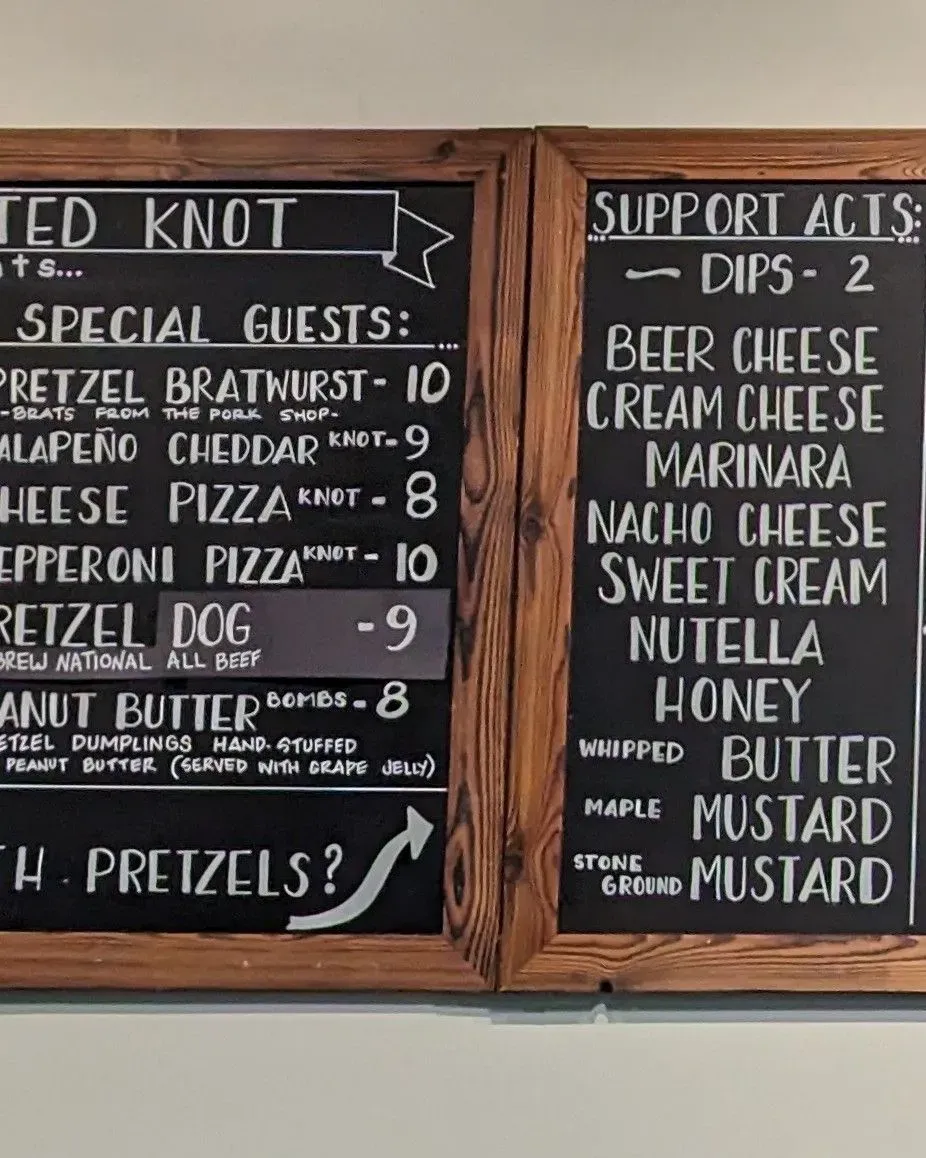 TED KNOT
ts...
SPECIAL GUESTS:
PRETZEL BRATWURST- 10
-BRATS FROM THE PORK SHOP-
ALAPEÑO CHEDDAR KNOT- 9
HEESE PIZZA KNOT - 8
EPPERONI PIZZA KNOT - 10
RETZEL DOG - 9
BREW NATIONAL ALL BEEF
ANUT BUTTER BOMBS - 8
ETZEL DUMPLINGS HAND-STUFFED
PEANUT BUTTER (SERVED WITH GRAPE JELLY)
TH PRETZELS?
SUPPORT ACTS:
— DIPS - 2
BEER CHEESE
CREAM CHEESE
MARINARA
NACHO CHEESE
SWEET CREAM
NUTELLA
HONEY
WHIPPED BUTTER
MAPLE MUSTARD
STONE GROUND MUSTARD